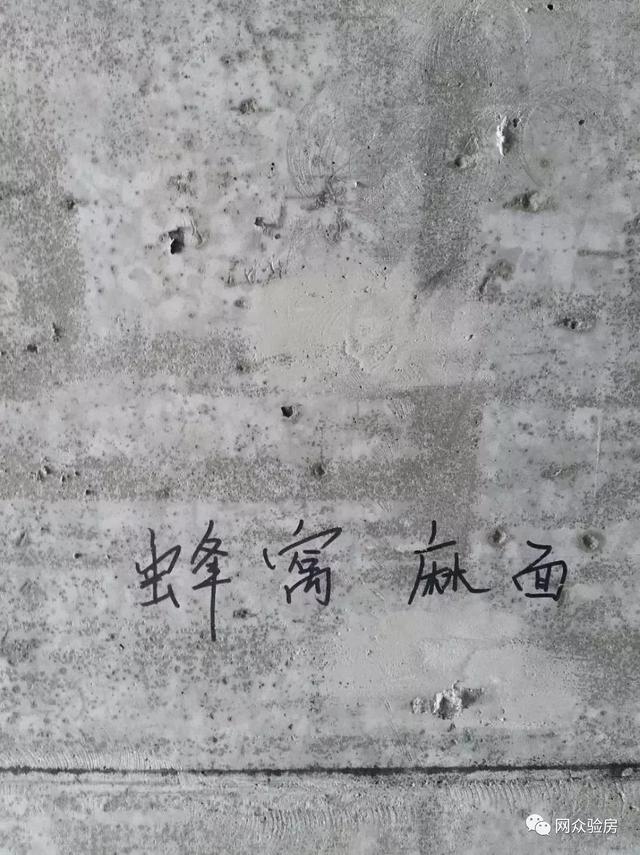 蜂窝 麻面
网众验房